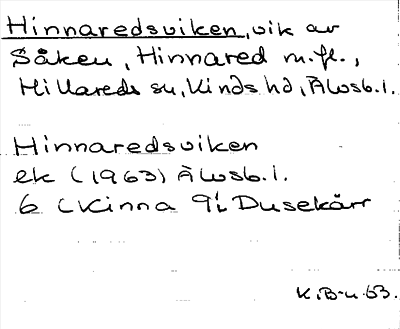 Hinnaredsviken, vik av
Såken, Hinnared m.fl.,
Hillareds sn, Kinds hd, Älvsb.l.
Hinnaredsviken
ek (1963) Älvsb.l.
6 (Kinna 9i Dusekärr
K.B-n. 63.